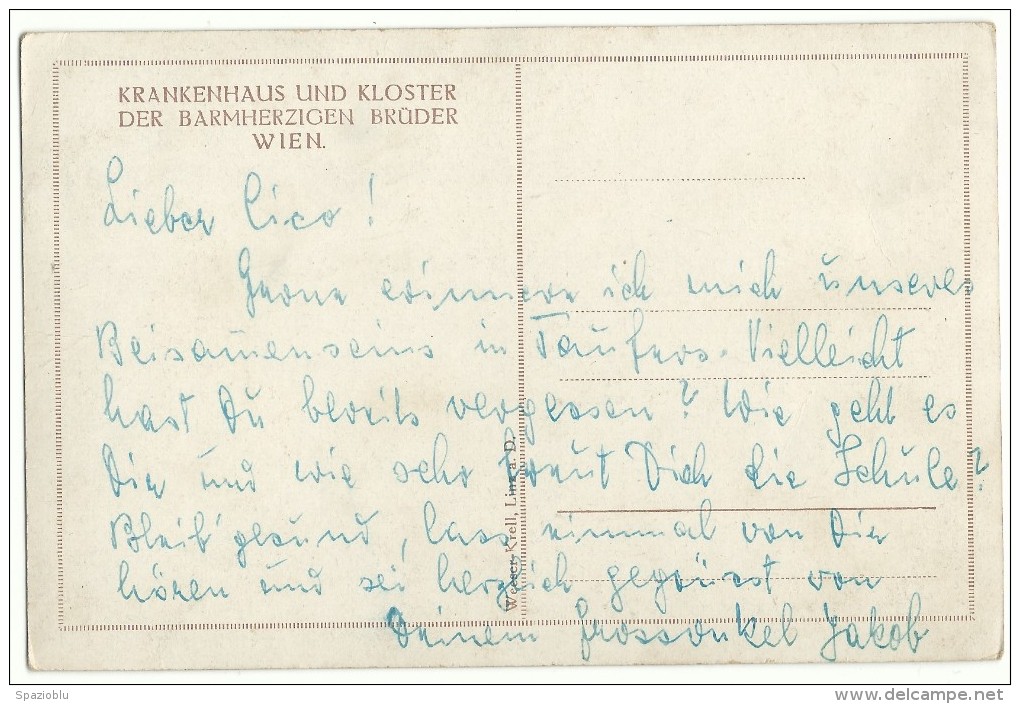 KRANKENHAUS UND KLOSTER
DER BARMHERZIGEN BRÜDER
WIEN.
Lieber Cico!
Gerne erinnere ich mich unseres
Beisammenseins in Taufers. Vielleicht
hast Du bereits vergessen? Wie geht es
Dir und wie sehr freut Dich die Schule?
Bleib' gesund, lass einmal von Dir
hören und sei herzlich gegrüsst von
Deinem Grossonkel Jakob
Weeser-Krell, Linz a. D.
Spazioblu
delcampe.net